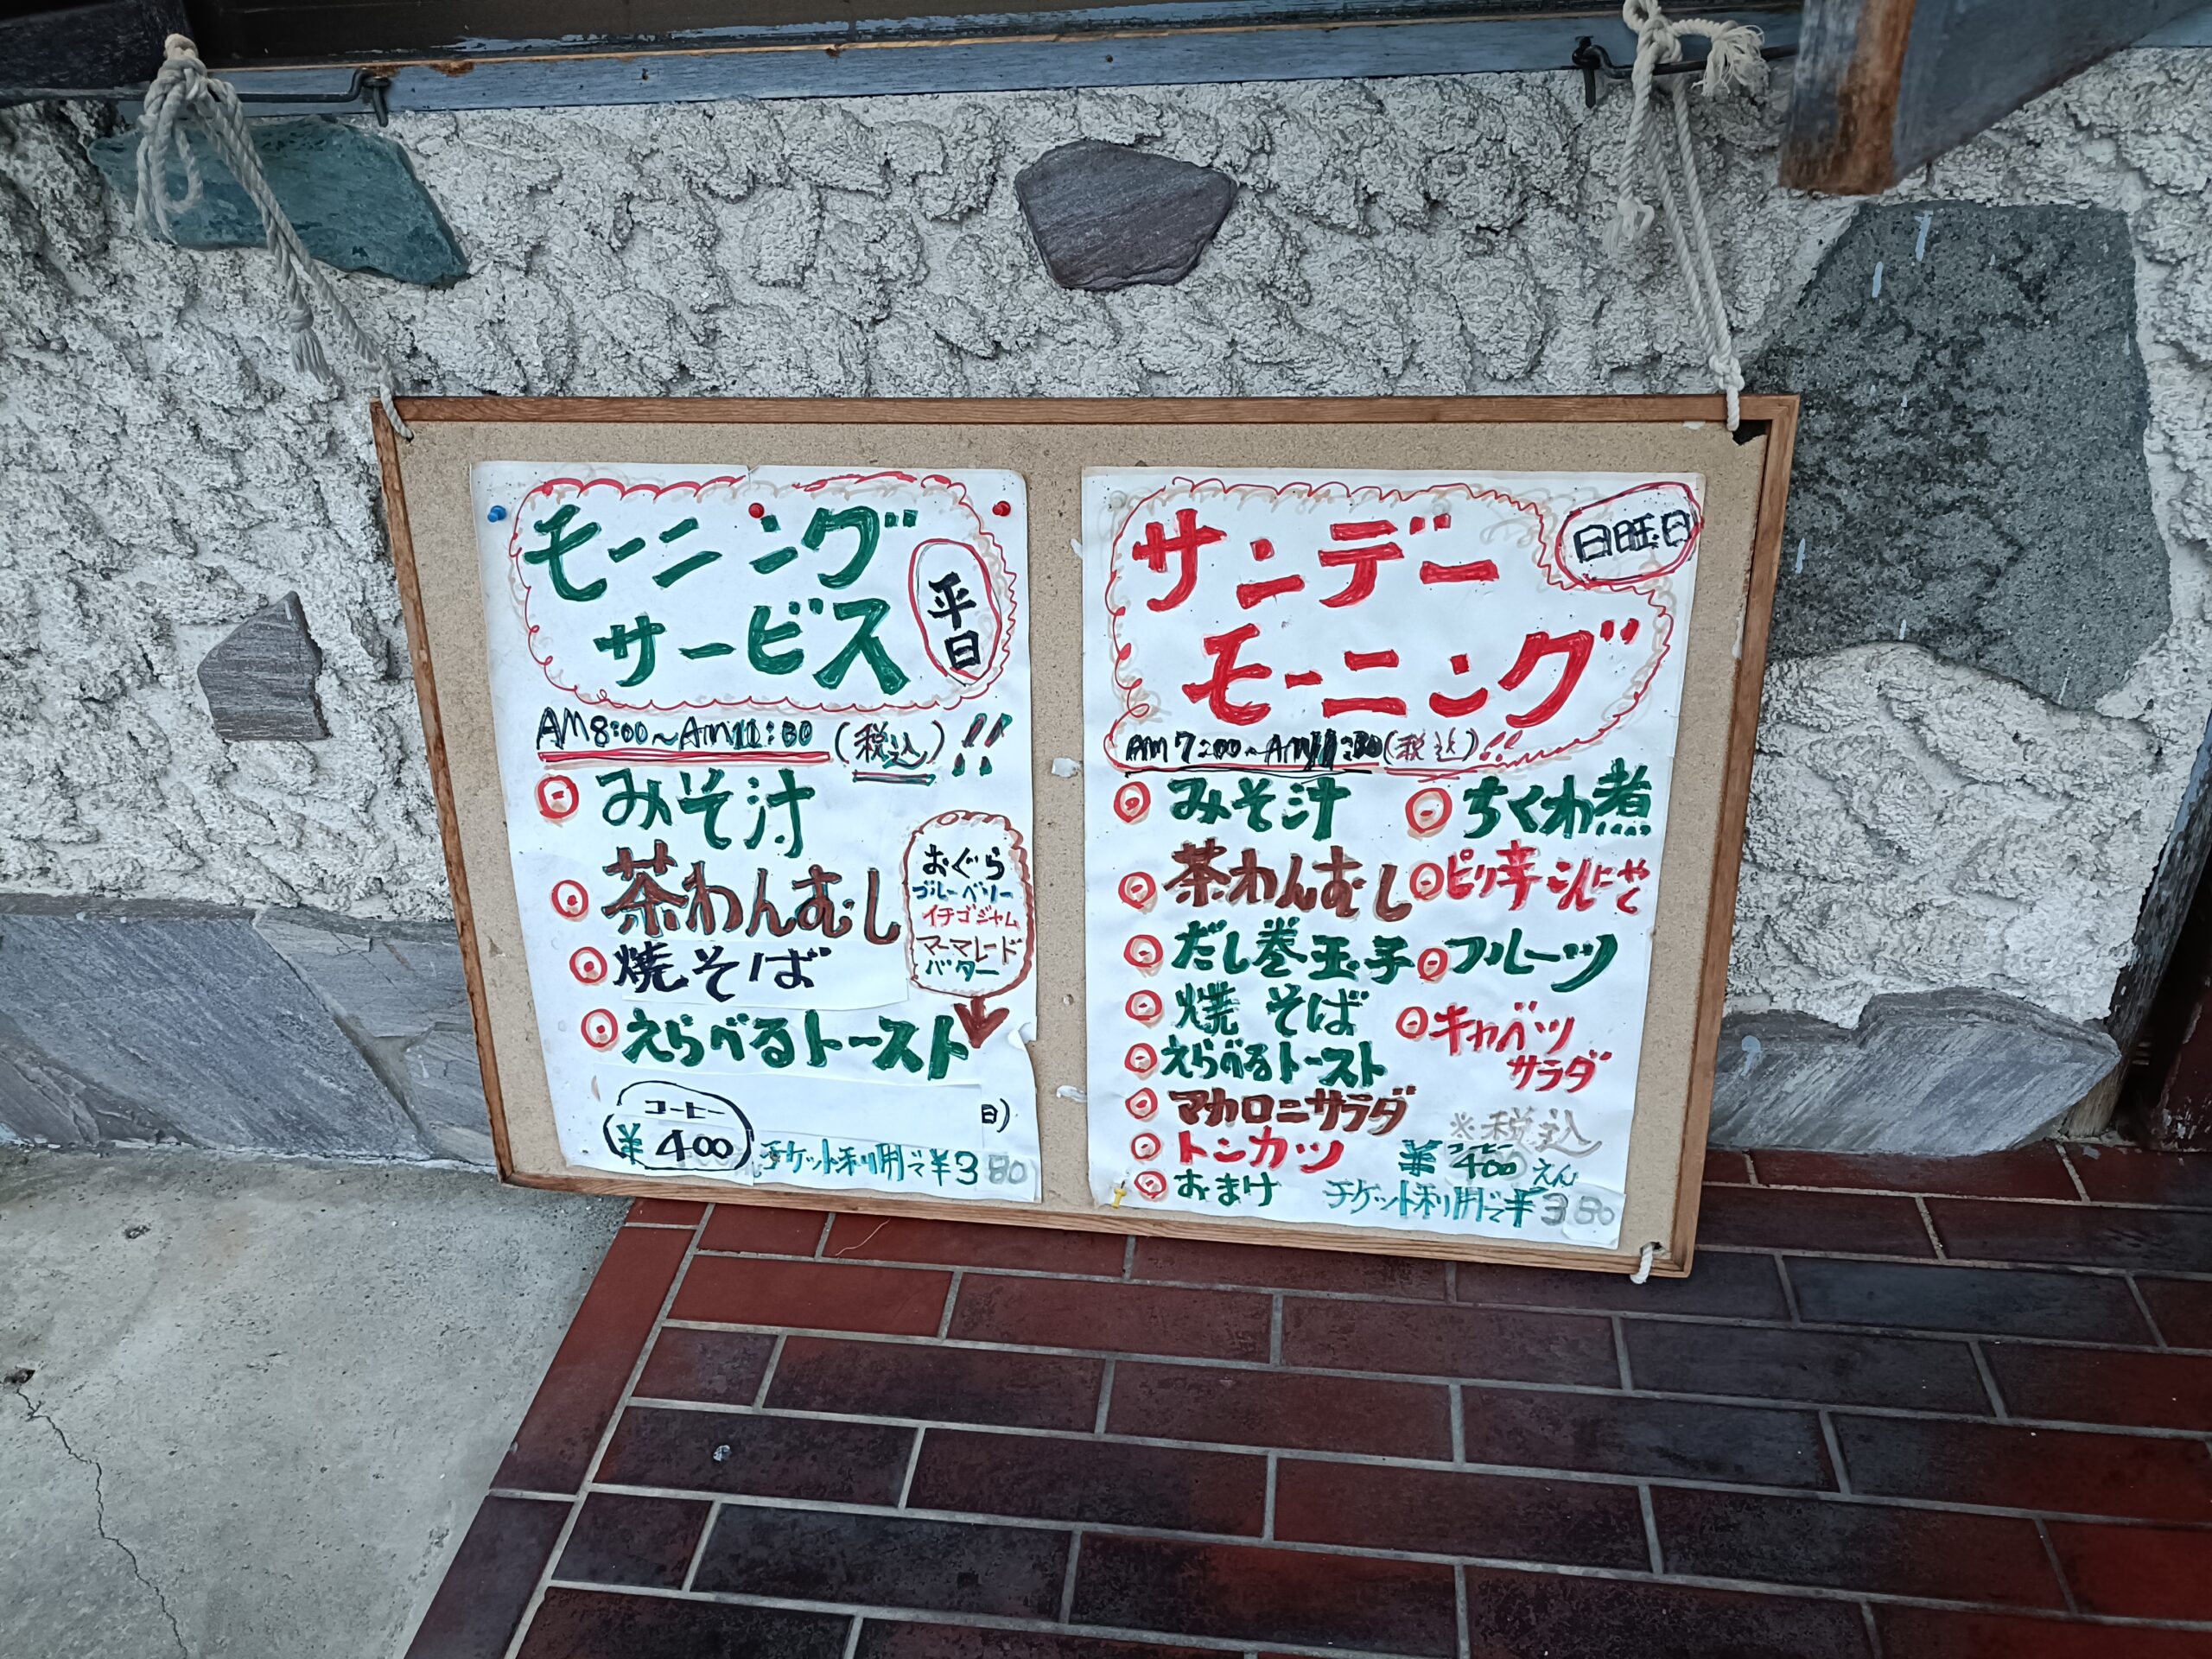 モーニング
サービス
平日
AM8:00～AM11:30(税込)!!
みそ汁
茶わんむし
焼そば
えらべるトースト
おぐら
ブルーベリー
イチゴジャム
マーマレード
バター
コーヒー
¥400
日)
チケット利用で¥380
サンデー
モーニング
日曜日
AM7:00～AM11:30(税込)!!
みそ汁
茶わんむし
だし巻玉子
焼そば
えらべるトースト
マカロニサラダ
トンカツ
おまけ
ちくわ煮
ピリ辛こんにゃく
フルーツ
キャベツ
サラダ
※税込
コーヒー
¥400えん
チケット利用で¥380